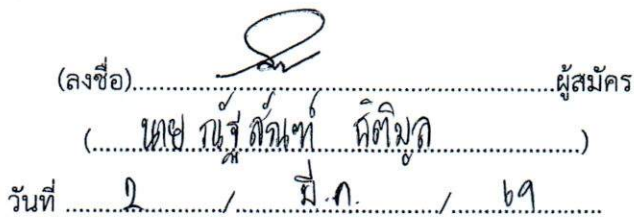 (ลงชื่อ)..........................................................ผู้สมัคร
(........นาย ณัฐสัณฑ์ ธิติมูล........)
วันที่ ........2......../.....มี.ค....../.....69.....